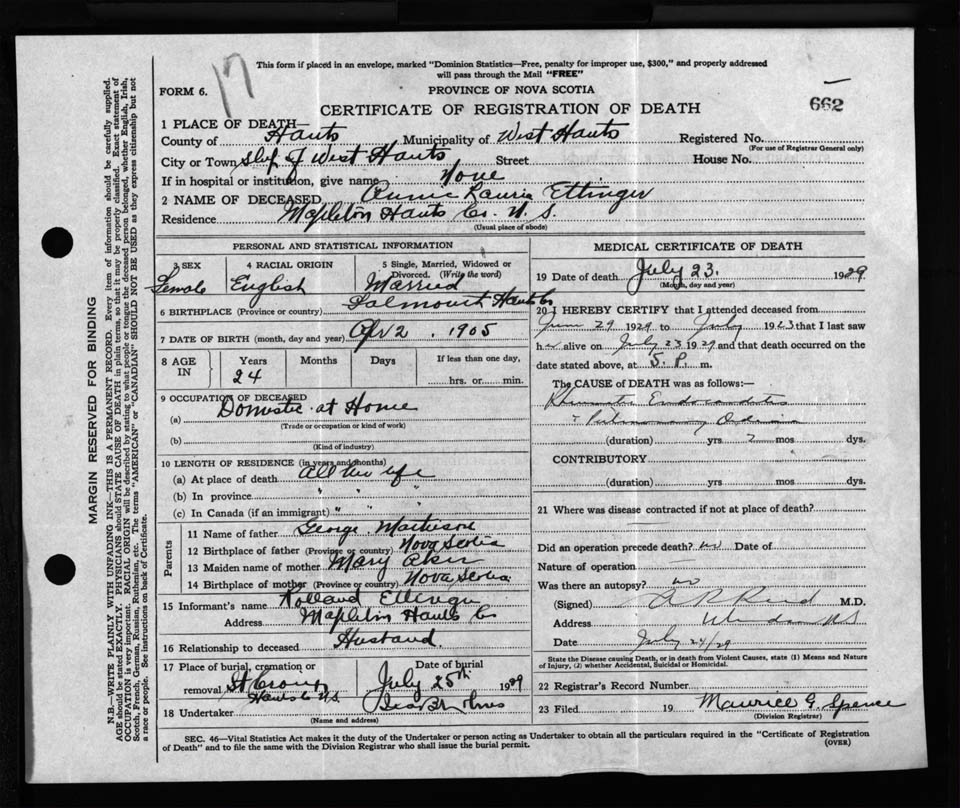 17
This form if placed in an envelope, marked "Dominion Statistics—Free, penalty for improper use, $300," and properly addressed
will pass through the Mail "FREE"
FORM 6.
PROVINCE OF NOVA SCOTIA
662
CERTIFICATE OF REGISTRATION OF DEATH
1 PLACE OF DEATH—
County of Hants Municipality of West Hants Registered No.
(For use of Registrar General only)
City or Town Shp. of West Hants Street House No.
If in hospital or institution, give name None
2 NAME OF DECEASED Laurie Ettinger
Residence Mapleton Hants Co. N. S.
(Usual place of abode)
PERSONAL AND STATISTICAL INFORMATION
3 SEX 4 RACIAL ORIGIN 5 Single, Married, Widowed or
Divorced. (Write the word)
Female English Married
6 BIRTHPLACE (Province or country) Falmouth Hants Co
7 DATE OF BIRTH (month, day and year) Apr 2, 1905
8 AGE IN Years Months Days If less than one day,
24 hrs. or min.
9 OCCUPATION OF DECEASED
(a) Domestic at Home
(Trade or occupation or kind of work)
(b)
(Kind of industry)
10 LENGTH OF RESIDENCE (in years and months)
(a) At place of death All her life
(b) In province " " "
(c) In Canada (if an immigrant) " " "
Parents
11 Name of father George
12 Birthplace of father (Province or country) Nova Scotia
13 Maiden name of mother Mary Aker
14 Birthplace of mother (Province or country) Nova Scotia
15 Informant's name Rolland Ettinger
Address Mapleton Hants Co
16 Relationship to deceased Husband.
17 Place of burial, cremation or Date of burial
removal St Croix July 25th 1929
Hants Co N.S.
18 Undertaker
(Name and address)
MEDICAL CERTIFICATE OF DEATH
19 Date of death July 23. 1929
(Month, day and year)
20 I HEREBY CERTIFY that I attended deceased from
June 29 1929 to July 1923 that I last saw
her alive on July 23 1929 and that death occurred on the
date stated above, at 5. P. m.
The CAUSE OF DEATH was as follows:—
Rheumatic Endocarditis
+ Pulmonary Oedema
(duration) yrs 2 mos dys.
CONTRIBUTORY
(duration) yrs. mos. dys.
21 Where was disease contracted if not at place of death?
Did an operation precede death? no Date of
Nature of operation
Was there an autopsy? no
(Signed) M.D.
Address Windsor N.S
Date July 24/29
State the Disease causing Death, or in death from Violent Causes, state (1) Means and Nature
of Injury, (2) whether Accidental, Suicidal or Homicidal.
22 Registrar's Record Number
23 Filed 19 Maurice G. Spence
(Division Registrar)
SEC. 46—Vital Statistics Act makes it the duty of the Undertaker or person acting as Undertaker to obtain all the particulars required in the "Certificate of Registration
of Death" and to file the same with the Division Registrar who shall issue the burial permit.
(OVER)
MARGIN RESERVED FOR BINDING
N.B.—WRITE PLAINLY WITH UNFADING INK—THIS IS A PERMANENT RECORD. Every item of information should be carefully supplied.
AGE should be stated EXACTLY. PHYSICIANS should STATE CAUSE OF DEATH in plain terms, so that it may be properly classified. Exact statement of
OCCUPATION is very important. RACIAL ORIGIN will be described by stating to what people or tongue the deceased person belonged, whether English, Irish,
Scotch, French, German, Russian, Ruthenian, etc. The terms "AMERICAN" or "CANADIAN" SHOULD NOT BE USED as they express citizenship but not
a race or people. See instructions on back of Certificate.